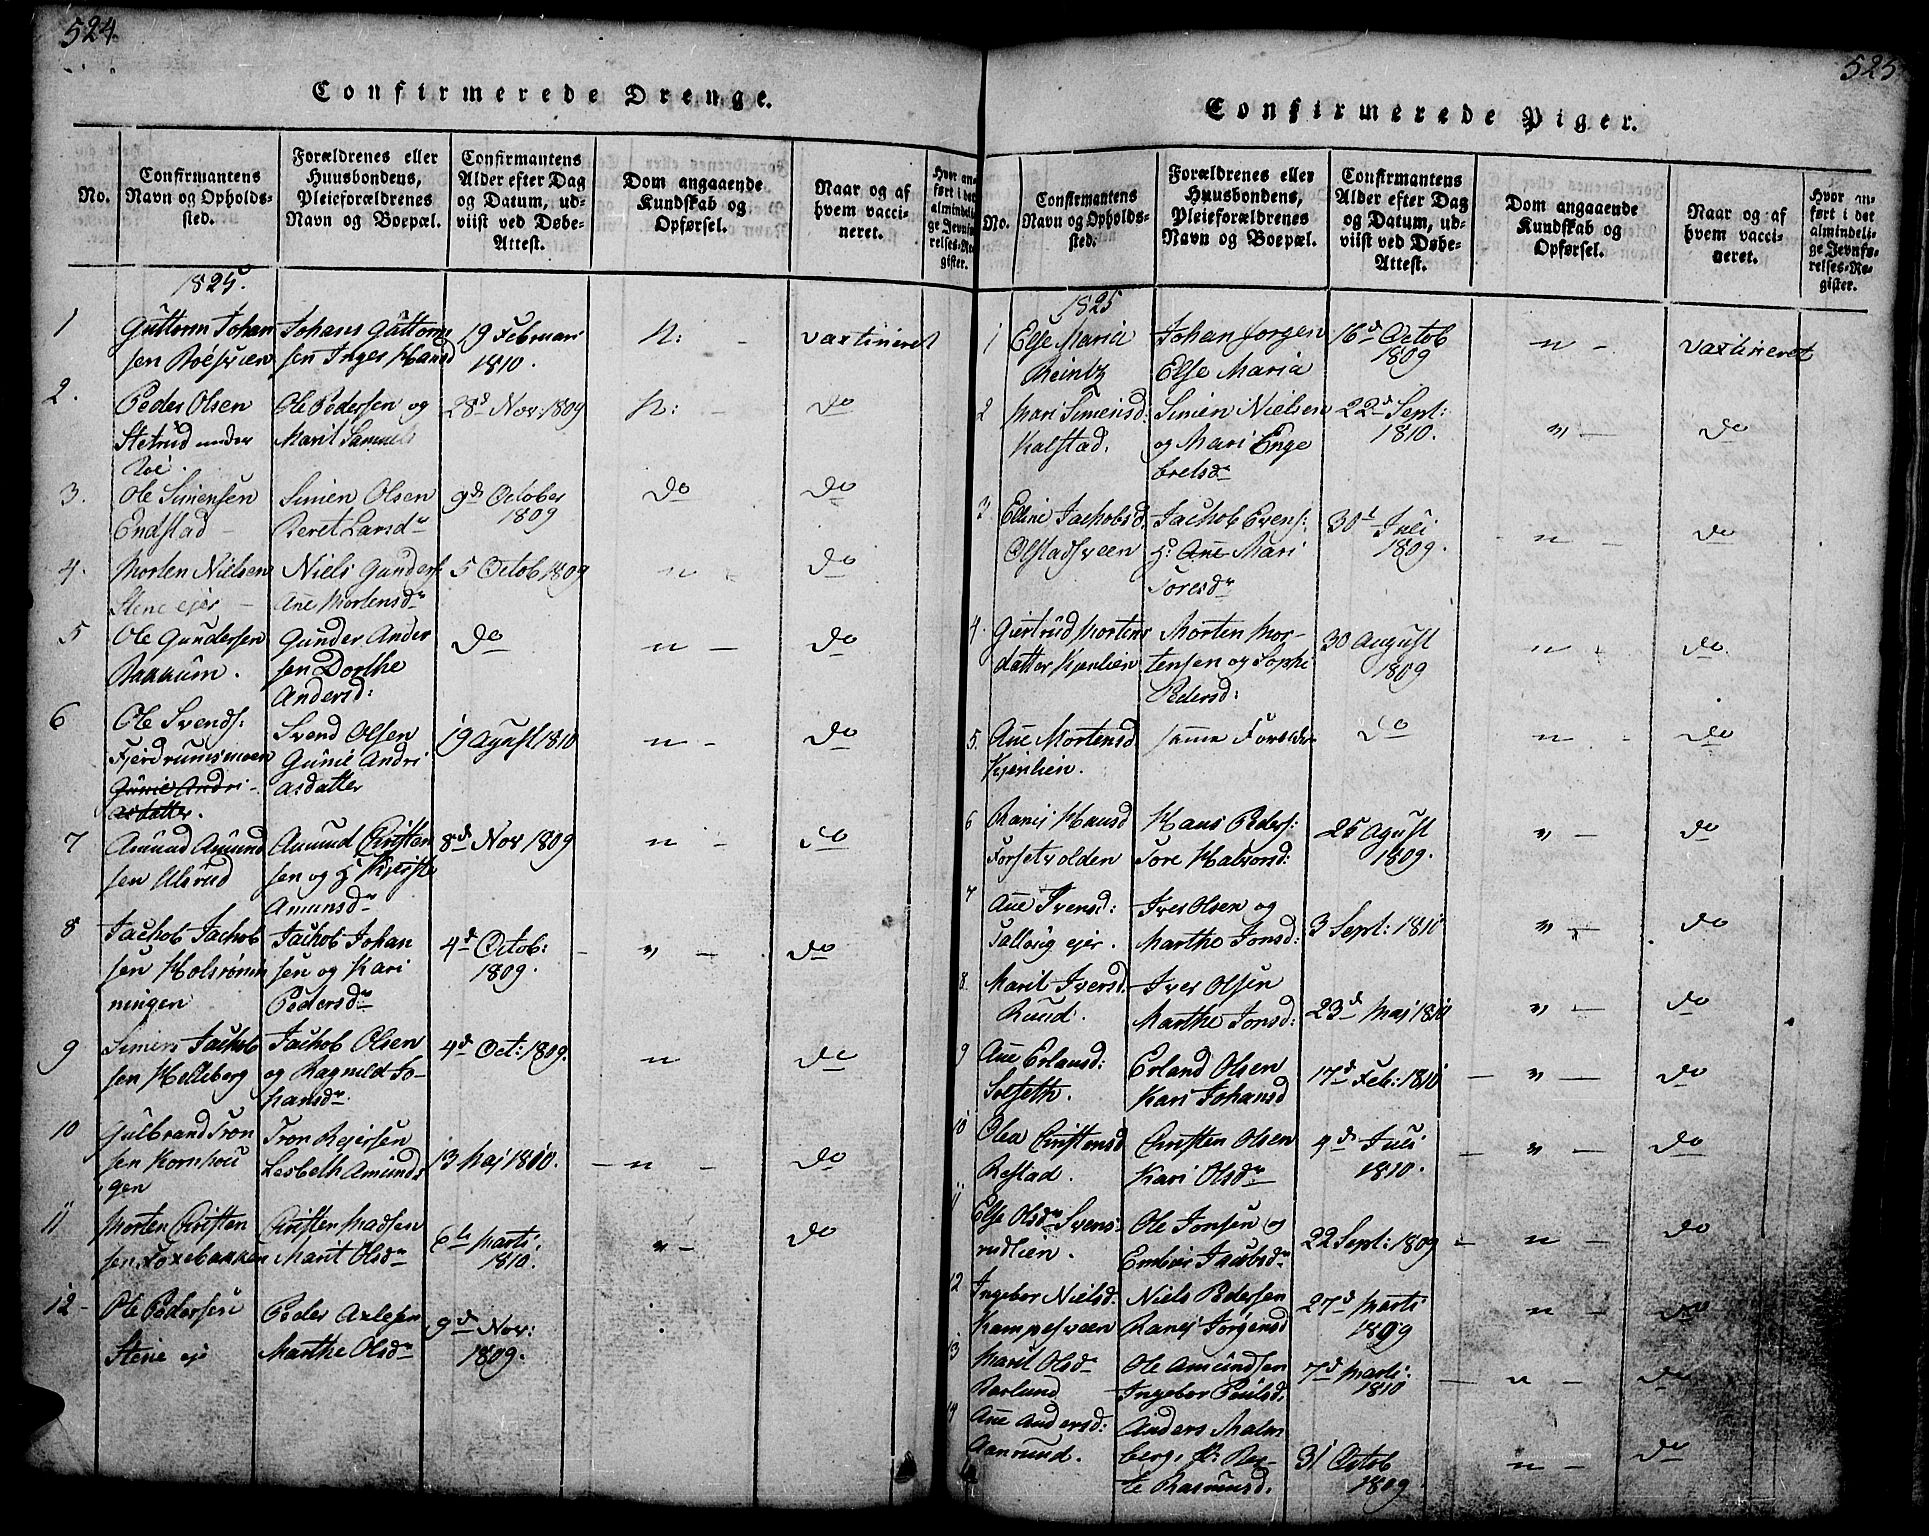 524
Confirmerede Drenge.
No.
Confirmantens
Navn og Opholds-
sted.
Forældrenes eller
Huusbondens,
Pleieforældrenes
Navn og Boepæl.
Confirmantens
Alder efter Dag
og Datum, ud-
viist ved Døbe-
Attest.
Dom angaaende
Kundskab og
Opførsel.
Naar og af
hvem vacci-
neret.
Hvor an-
ført i det
almindeli-
ge Jevnfø-
relses-Re-
gister.
1825.
1
Guttorm Johan
sen
Johans Guttorm
sen Inger Hansd
19 Februari
1810.
n:
vaxtineret
2.
Peder Olsen
Stetrud under
Roe.
Ole Pedersen og
Marit Samuels
28d Nov: 1809
n: -
do
3.
Ole Simensen
Endstad -
Simen Olsen
Beret Larsdr
9d October
1809
do
do
4.
Morten Nielsen
Stene ejer -
Niels Gunders
Ane Mortensdr
5 Octob 1809
n -
do
5
Ole Gundersen
Gunder Ander
sen Dorthe
Andersd:
do
n -
do
6
Ole Svends:
Gunie Andri-
asdatter.
Svend Olsen
Gunie Andri
asdatter
19 Agust 1810
n -
do
7
Amund Amund
sen Ulsrud
Amund Christen
sen og H Kjerste
Amunsdr
8d Nov 1809
n -
do
8
Jachob Jachob
sen
ningen
Jachob Johan
sen og Kari
Pedersdr
4d Octob:
1809.
n -
do
9
Simen Jachob
sen Helleberg
Jachob Olsen
og Ragnild Jo-
hansdr
4d Oct: 1809.
n
do
10
Gulbrand Tron
sen Kornhou
gen
Tron Rejersen
Lesbeth Amunds
13 Maj 1810.
- n -
do
11
Morten Christen
sen
Christen Madsen
Marit Olsdr
6te Marti
1810.
n -
do
12-
Ole Pedersen
Stene ej
Peder Axelsen
Marthe Olsdr
9d Nov:
1809.
525
Confirmerede Piger.
No.
Confirmantens
Navn og Opholds-
sted.
Forældrenes eller
Huusbondens,
Pleieforældrenes
Navn og Boepæl.
Confirmantens
Alder efter Dag
og Datum, ud-
viist ved Døbe-
Attest.
Dom angaaende
Kundskab og
Opførsel.
Naar og af
hvem vacci-
neret.
Hvor an-
ført i det
almindeli-
ge Jevnfø-
relses-Re-
gister.
1825
1
Else Maria
Reintz
Johan Jorgen
Else Maria
16d Octob
1809
n -
vaxtineret
2
Mari Simensd:
Kalstad.
Simen Nielsen
og Mari Enge
bretsdr
22d Sept:
1810.
n -
do
3
Eline Jachobsd
Olstadsveen
Jachob Evens:
H: Ane Mari
Toresdr
30d Juli
1809.
n -
do
4.
Giertrud Mortens
datter Kjenlien
Morten Mor-
tensen og Sophi
Pedersd:
30 August
1809
n
do.
5.
Ane Mortensd
Kjenlien.
samme Forelder
do
n -
do
6
Ranej Hansd
Forsetvolden
Hans Peders:
Tore Halvorsd:
25 Agust
1809.
n -
do
7
Ane Iversd:
ejer.
Iver Olsen og
Marthe Jonsd:
3 Sept: 1810
n -
do
8.
Marit Iversd.
Ruud.
Iver Olsen
Marthe Jonsd:
23d Maj 1810
n -
do
9
Ane Erlansd:
Solseth.
Erland Olsen
Kari Johansd
17d Feb: 1810
- n -
do
10
Olea Christensd
Restad.
Christen Olsen
Kari Olsdr
4d Juli
1810.
- n -
do
11
Else Olsdr Svens-
rudlien.
Ole Jonsen og
Jacobsdr
22 Sept: 1809
- n -
do
12
Ingebor Nielsd.
Kampesveen
Niels Pedersen
Ranej Jorgensd
27d Marti
1809
n -
do
13
Marit Olsdr
Ole Amundsen
Ingebor Poulsd.
7d Marti
1810
- n -
do
14
Ane Andersd:
Aanrud.
Anders Malm
berg,
te Rasmusd.
31 Octob
1809.
n -
do